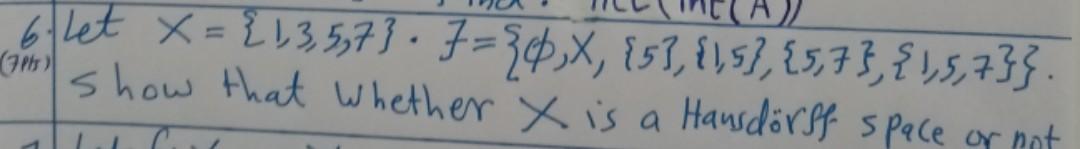 6. Let X = {1,3,5,7}. J = {ϕ, X, {5}, {1,5}, {5,7}, {1,5,7}}.
(7pts)
show that whether X is a Hausdörff space or not